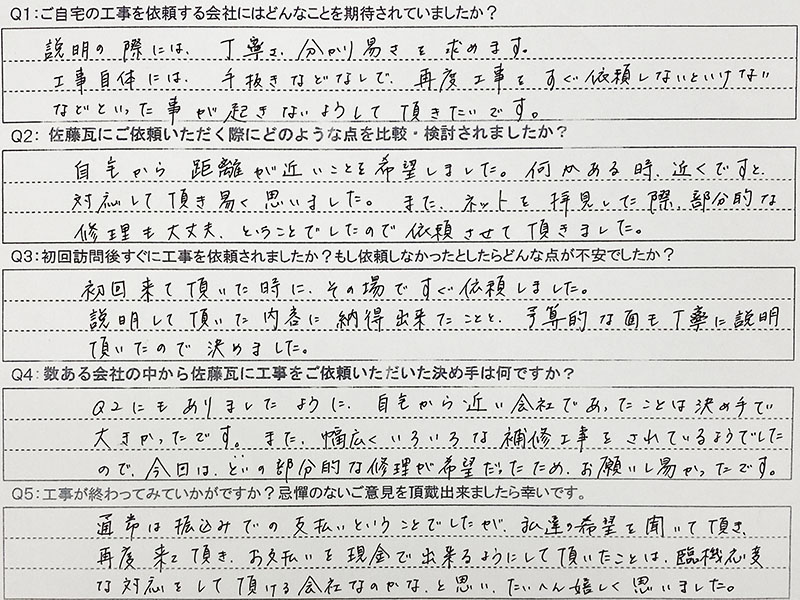 Q1:ご自宅の工事を依頼する会社にはどんなことを期待されていましたか？
説明の際には、丁寧さ、分かり易さを求めます。
工事自体には、手抜きなどなしで、再度工事をすぐ依頼しないといけない
などといった事が起きないようして頂きたいです。
Q2: 佐藤瓦にご依頼いただく際にどのような点を比較・検討されましたか？
自宅から距離が近いことを希望しました。何かある時、近くですと、
対応して頂き易く思いました。また、ネットを拝見した際、部分的な
修理も大丈夫、ということでしたので依頼させて頂きました。
Q3:初回訪問後すぐに工事を依頼されましたか？もし依頼しなかったとしたらどんな点が不安でしたか？
初回来て頂いた時に、その場ですぐ依頼しました。
説明して頂いた内容に納得出来たことと、予算的な面も丁寧に説明
頂いたので決めました。
Q4:数ある会社の中から佐藤瓦に工事をご依頼いただいた決め手は何ですか？
Q2にもありましたように、自宅から近い会社であったことは決め手で
大きかったです。また、幅広くいろいろな補修工事をされているようでした
ので、今回は、といの部分的な修理が希望だったため、お願いし易かったです。
Q5:工事が終わってみていかがですか？忌憚のないご意見を頂戴出来ましたら幸いです。
通常は振込みでの支払いということでしたが、私達の希望を聞いて頂き、
再度来て頂き、お支払いを現金で出来るようにして頂いたことは、臨機応変
な対応をして頂ける会社なのかな、と思い、たいへん嬉しく思いました。